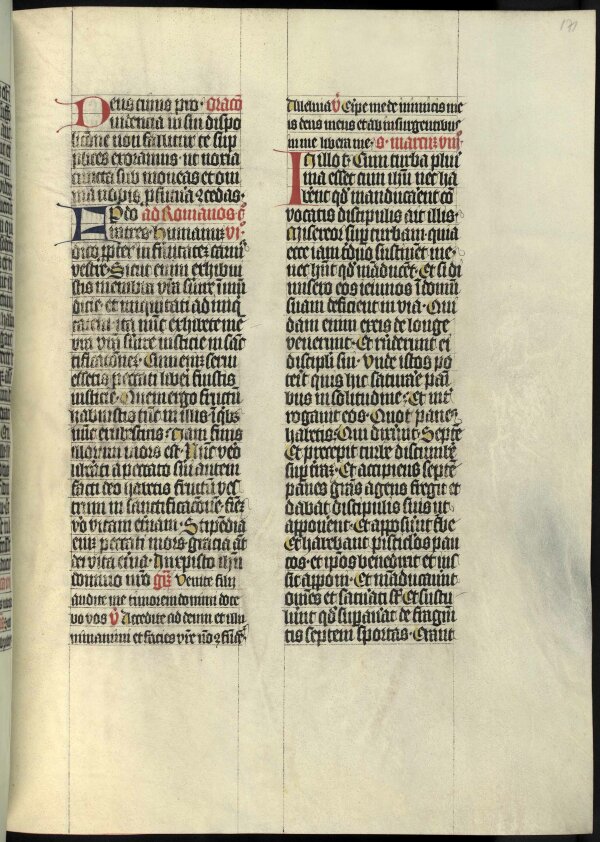 171
Deus cuius pro gracō
uidencia in sui dispo
sicōne non fallitur te sup
plices exoramus ut noxia
cuncta sub moueas et om
nia nobis ꝓfutura ꝯcedas
Ep̄do ad Romanos c̄
Fratres humanum vi
dico ꝓpter infirmitatē carnis
vestre Sicut enim exhibui
stis membra vrā seruire ī mū
dicie et iniquitati ad iniq̄
tatem ita nūc exhibete me
bra vrā seruire iusticie in sāc
tificacōnem Cum enim serui
essetis peccati liberi fuistis
iusticie Quem ergo fructū
habuistis tūc in illis ī qbꝰ
nūc erubescitis Nam finis
illorum mors est Nūc vero
liberati a peccato sui autem
facti deo habetis fructū ves
trum in sanctificacōne finē
vo vitam et̄nam Stipēdia
enim peccati mors gracia aūt
dei vita et̄na In xp̄isto ihū
domino nrō gr̄ Venite filii
audite me timorem domini doce
bo vos v̄ Accedite ad deum et illu
minamini et facies vrē nō ꝯfundēt̄
Alleluia v̄ Eripe me de inimicis me
is deus meus et ab insurgentibus
in me libera me s marcū viii
In illo t̄ Cum turba plui
ma esset cum ihū nec ha
berēt qd manducarent cō
vocatis discipulis ait illis
Misereor suꝑ turbam quia
ecce iam triduo sustinēt me
nec hn̄t qd māducēt Et si di
misero eos ieiunos ī domū
suam deficient in via Qui
dam enim ex eis de longe
venerunt Et rn̄derunt ei
discipuli sui Vnde istos po
terit quis hic saturare pani
bus in solitudine Et int̄
rogauit eos Quot panes
habetis Qui dixerūt Septē
Et precepit turbe discumbe
suꝑ trā Et accipiens septē
panes grās agens fregit et
dabat discipulis suis ut
apponerent Et apposuerūt tbe
Et habebant pisciculos pau
cos et ip̄os benedixit et ius
sit apponi Et māducauerūt
om̄es et saturati sūt Et sustu
lerūt qd suꝑauerat de fragmē
tis septem sportas Erant